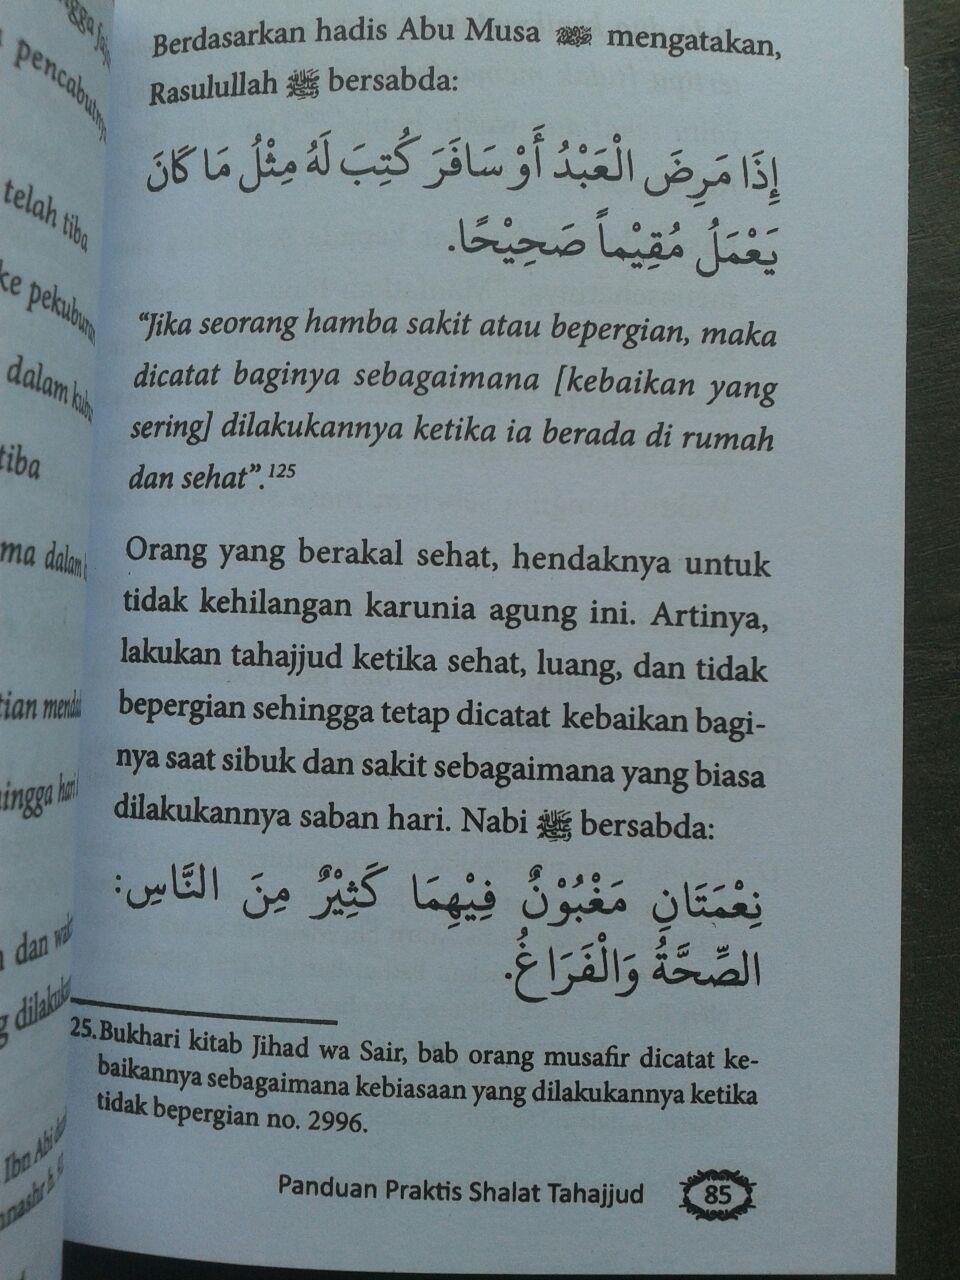 Berdasarkan hadis Abu Musa mengatakan,
Rasulullah ﷺ bersabda:
إِذَا مَرِضَ الْعَبْدُ أَوْ سَافَرَ كُتِبَ لَهُ مِثْلُ مَا كَانَ
يَعْمَلُ مُقِيْماً صَحِيْحًا.
“Jika seorang hamba sakit atau bepergian, maka
dicatat baginya sebagaimana [kebaikan yang
sering] dilakukannya ketika ia berada di rumah
dan sehat”.125
Orang yang berakal sehat, hendaknya untuk
tidak kehilangan karunia agung ini. Artinya,
lakukan tahajjud ketika sehat, luang, dan tidak
bepergian sehingga tetap dicatat kebaikan bagi-
nya saat sibuk dan sakit sebagaimana yang biasa
dilakukannya saban hari. Nabi ﷺ bersabda:
نِعْمَتَانِ مَغْبُوْنٌ فِيْهِمَا كَثِيْرٌ مِنَ النَّاسِ:
الصِّحَّةُ وَالْفَرَاغُ.
25. Bukhari kitab Jihad wa Sair, bab orang musafir dicatat ke-
baikannya sebagaimana kebiasaan yang dilakukannya ketika
tidak bepergian no. 2996.
Panduan Praktis Shalat Tahajjud 85
telah tiba
ke pekuburan
dalam
tiba
dalam
dan
Ibn Abi